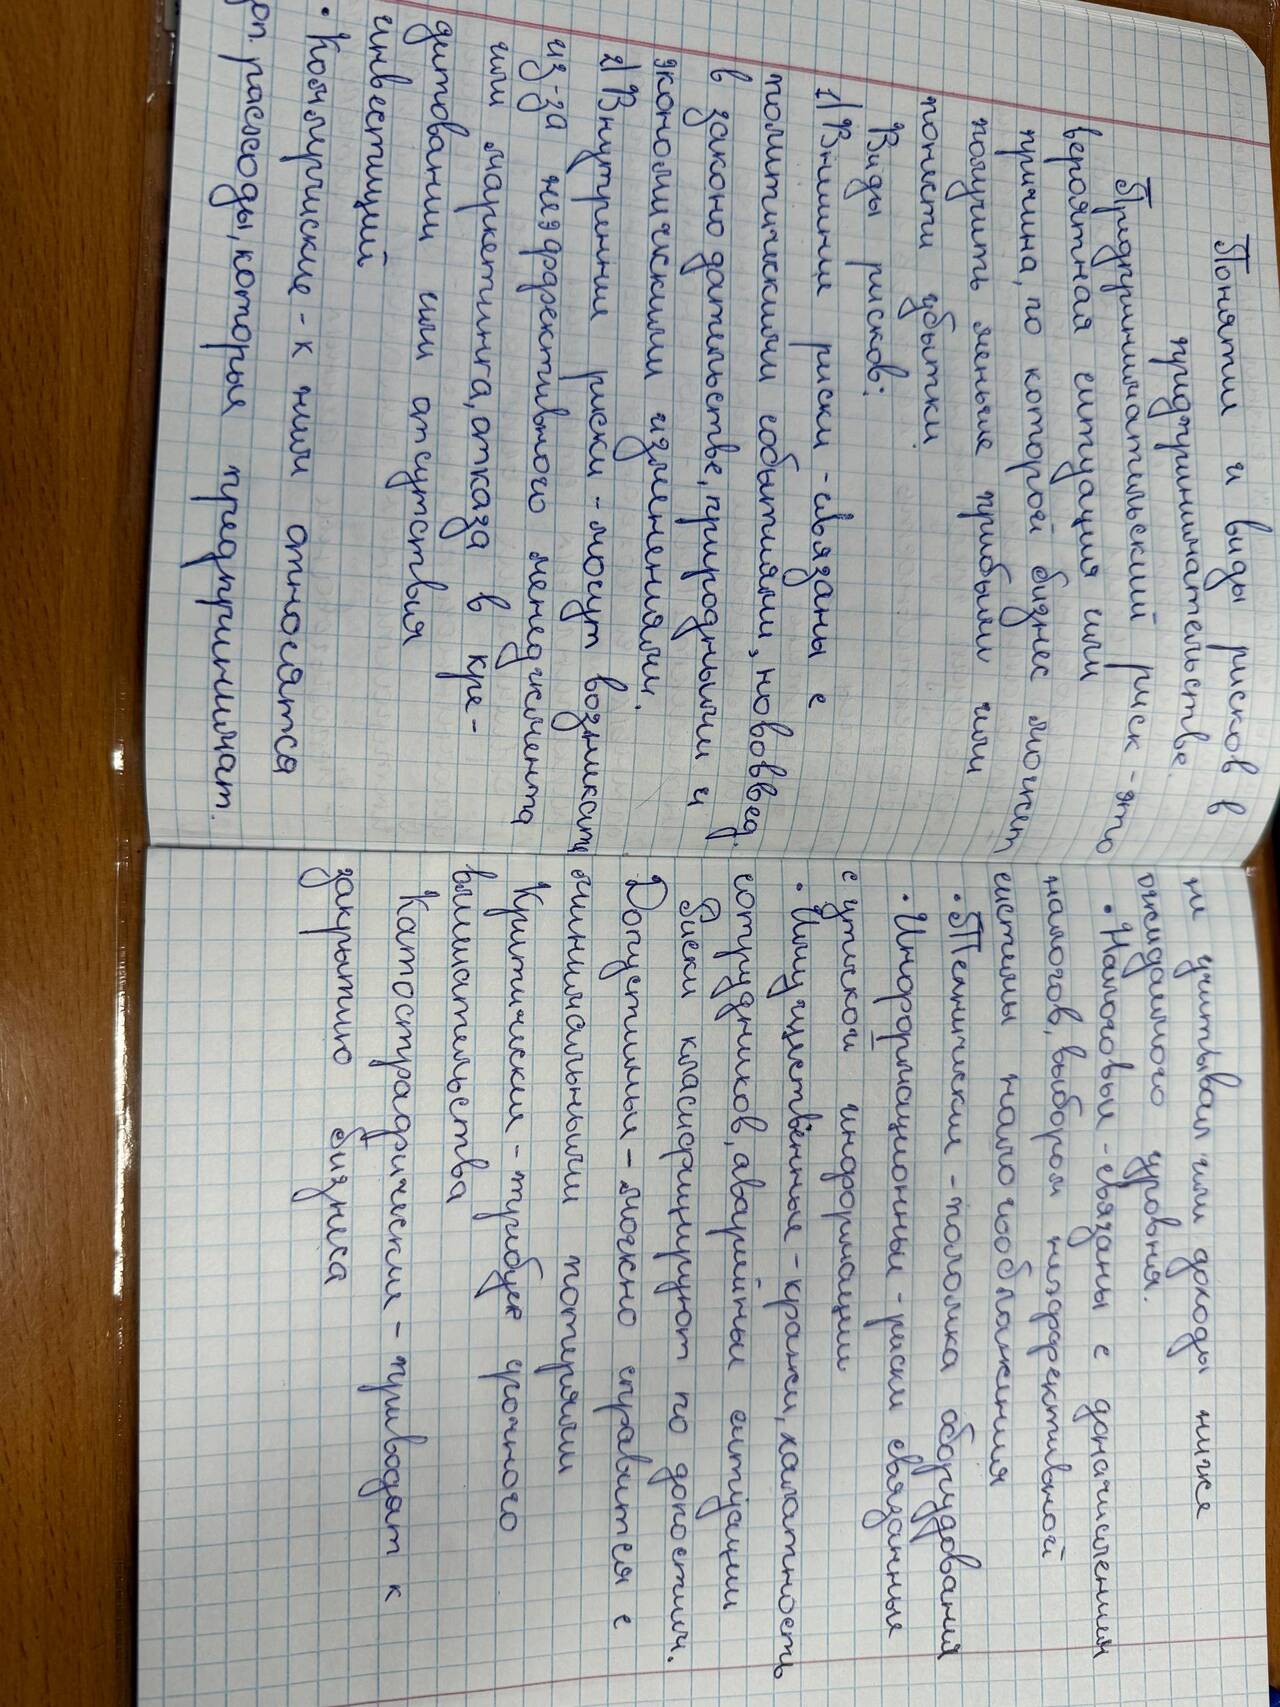 Понятия и виды рисков в
предпринимательстве.
Предпринимательский риск - это
вероятная ситуация или
причина, по которой бизнес может
получить меньше прибыли или
понести убытки.
Виды рисков:
1) Внешнии риски - связаны с
политическими событиями, нововвед.
в законодательстве, природными и
экономическими изменениями.
2) Внутренние риски - могут возникать
из-за неэффективного менеджмента
или маркетинга, отказа в кре-
дитовании или отсутствия
инвестиций
• Коммерческие - к ним относятся
доп. расходы, которые предпринимат.
не учитывал или доходы ниже
ожидаемого уровня.
• Налоговые - связаны с доначислением
налогов, выбором неэффективной
системы налогообложения
• Технические - поломка оборудования
• Информационные - риски связанные
с утиской информации
• Имущественные - кражи, халатность
сотрудников, аварийные ситуации
Риски класифицируют по допостим.
Допустимые - можно справится с
минимальными потерями
Критические - требует срочного
вмешательства
Катострафические - приводят к
закрытию бизнеса